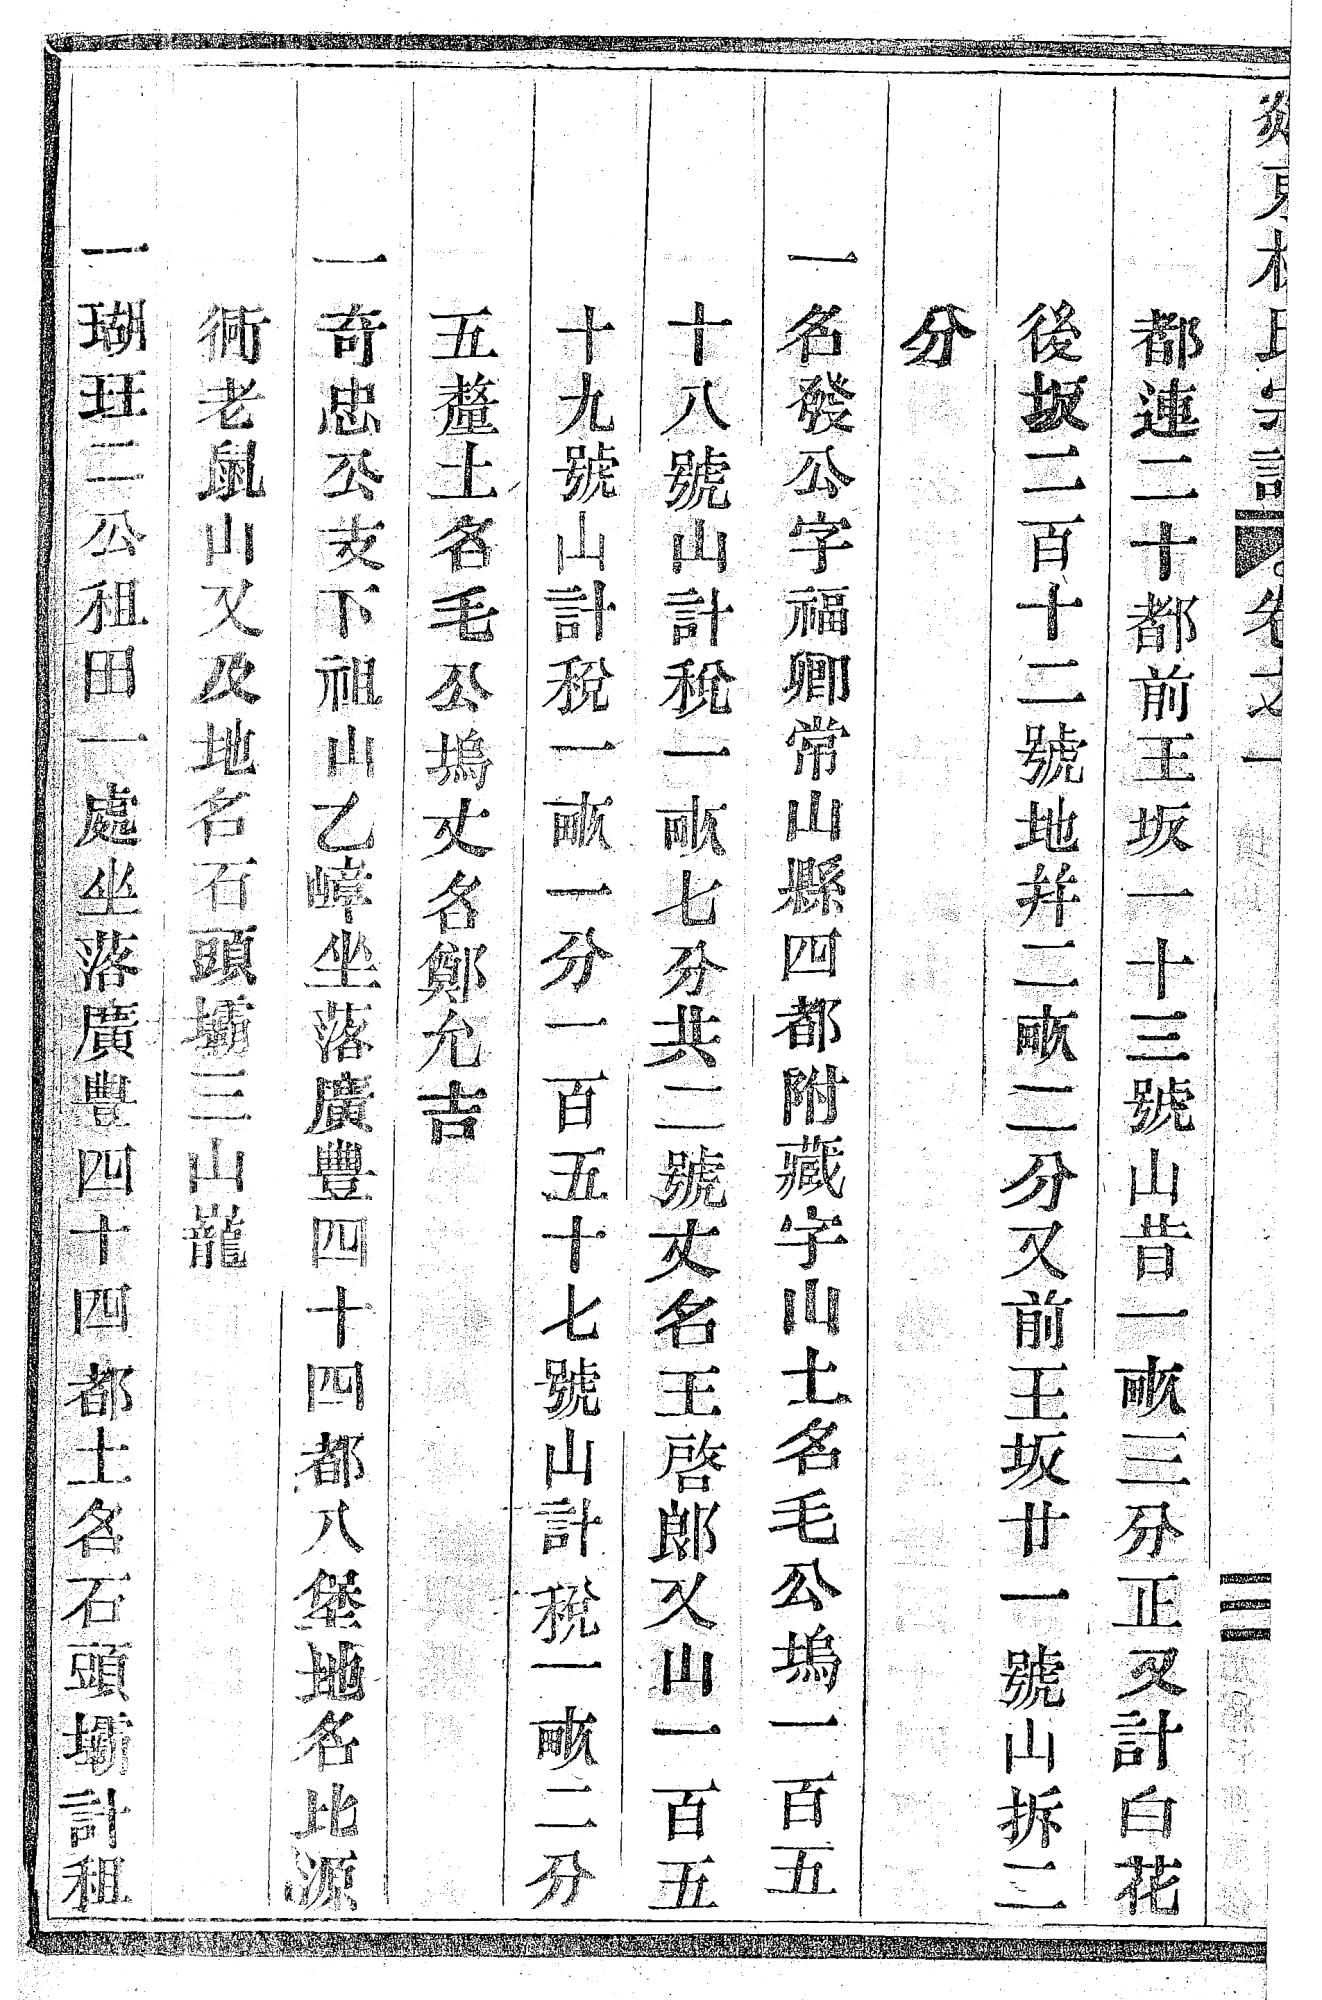 東 氏宗譜 卷之一 三
都連二十都前王坂一十三號山昔一畝三分正又計白花
後坂二百十二號地幷二畝二分又前王坂廿一號山拆二
分
一名發公字福卿常山縣四都附藏字山土名毛公塢一百五
十八號山計稅一畝七分共二號丈名王啓郎又山一百五
十九號山計稅一畝一分一百五十七號山計稅一畝二分
五釐土名毛公塢丈名鄭允吉
一奇忠公支下祖山乙嶂坐落廣豐四十四都八堡地名比源
衕老鼠山又及地名石頭壩三山巃
一瑚玨二公租田一處坐落廣豐四十四都土名石頭壩計租